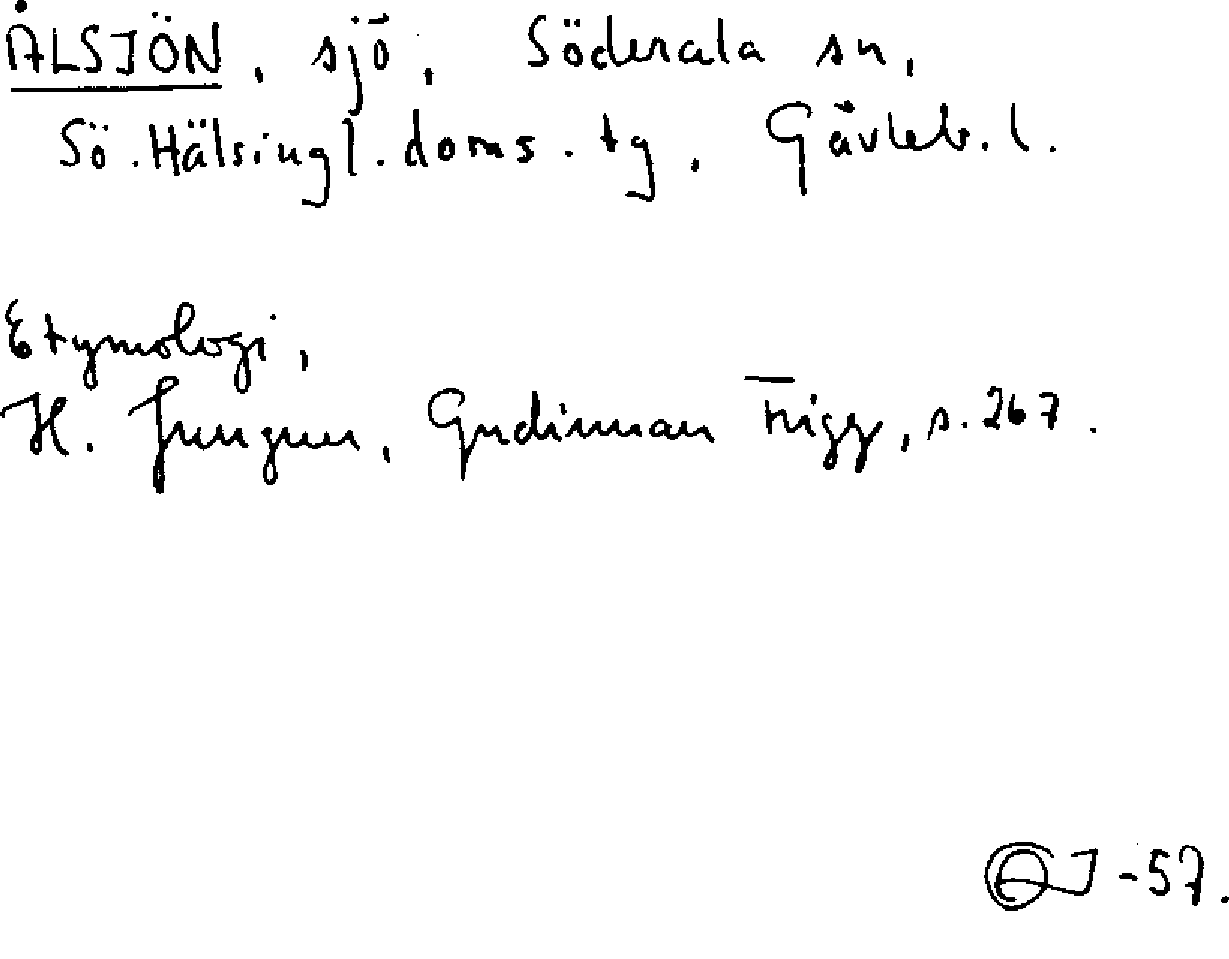 ÅLSJÖN, sjö, Söderala sn,
Sö. Hälsingl. doms. tg, Gävleb. l.
Etymologi,
H. Jungner, Gudinnan Frigg, s. 267.
-57.